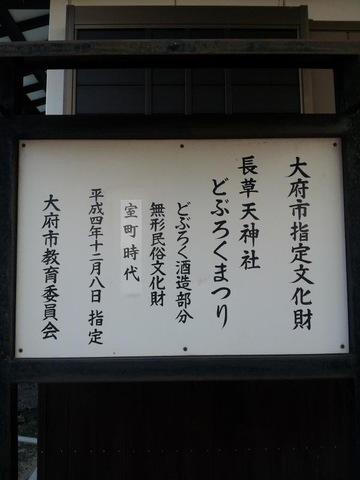 大府市指定文化財
長草天神社
どぶろくまつり
どぶろく酒造部分
無形民俗文化財
室町時代
平成四年十二月八日 指定
大府市教育委員会